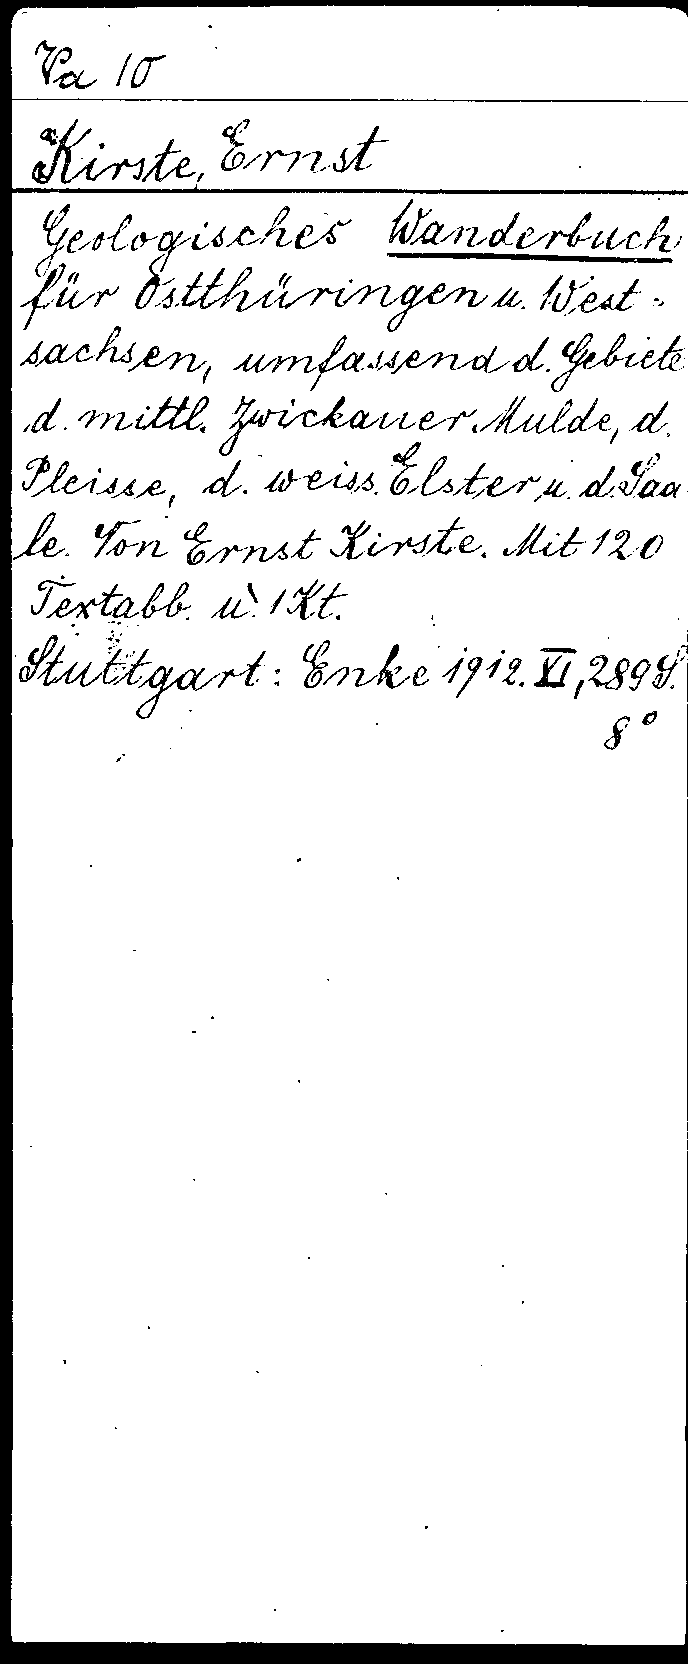 Va 10
Kirste, Ernst
Geologisches Wanderbuch
für Ostthüringen u. West-
sachsen, umfassend d. Gebiete
d. mittl. Zwickauer Mulde, d.
Pleisse, d. weiss. Elster u. d. Saa-
le. Von Ernst Kirste. Mit 120
Textabb. u. 1 Kt.
Stuttgart: Enke 1912. XI, 289 S.
8°